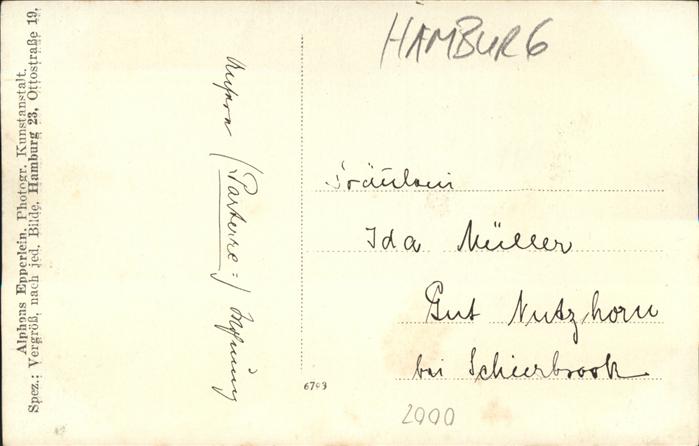 HAMBURG
Alphons Epperlein, Photogr. Kunstanstalt.
Spez.: Vergröß. nach jed. Bilde. Hamburg 23, Ottostraße 19.
Unsere (Parterre=) Wohnung
Fräulein
Ida Müller
Gut Nutzhorn
bei Schierbrook
6703
2000